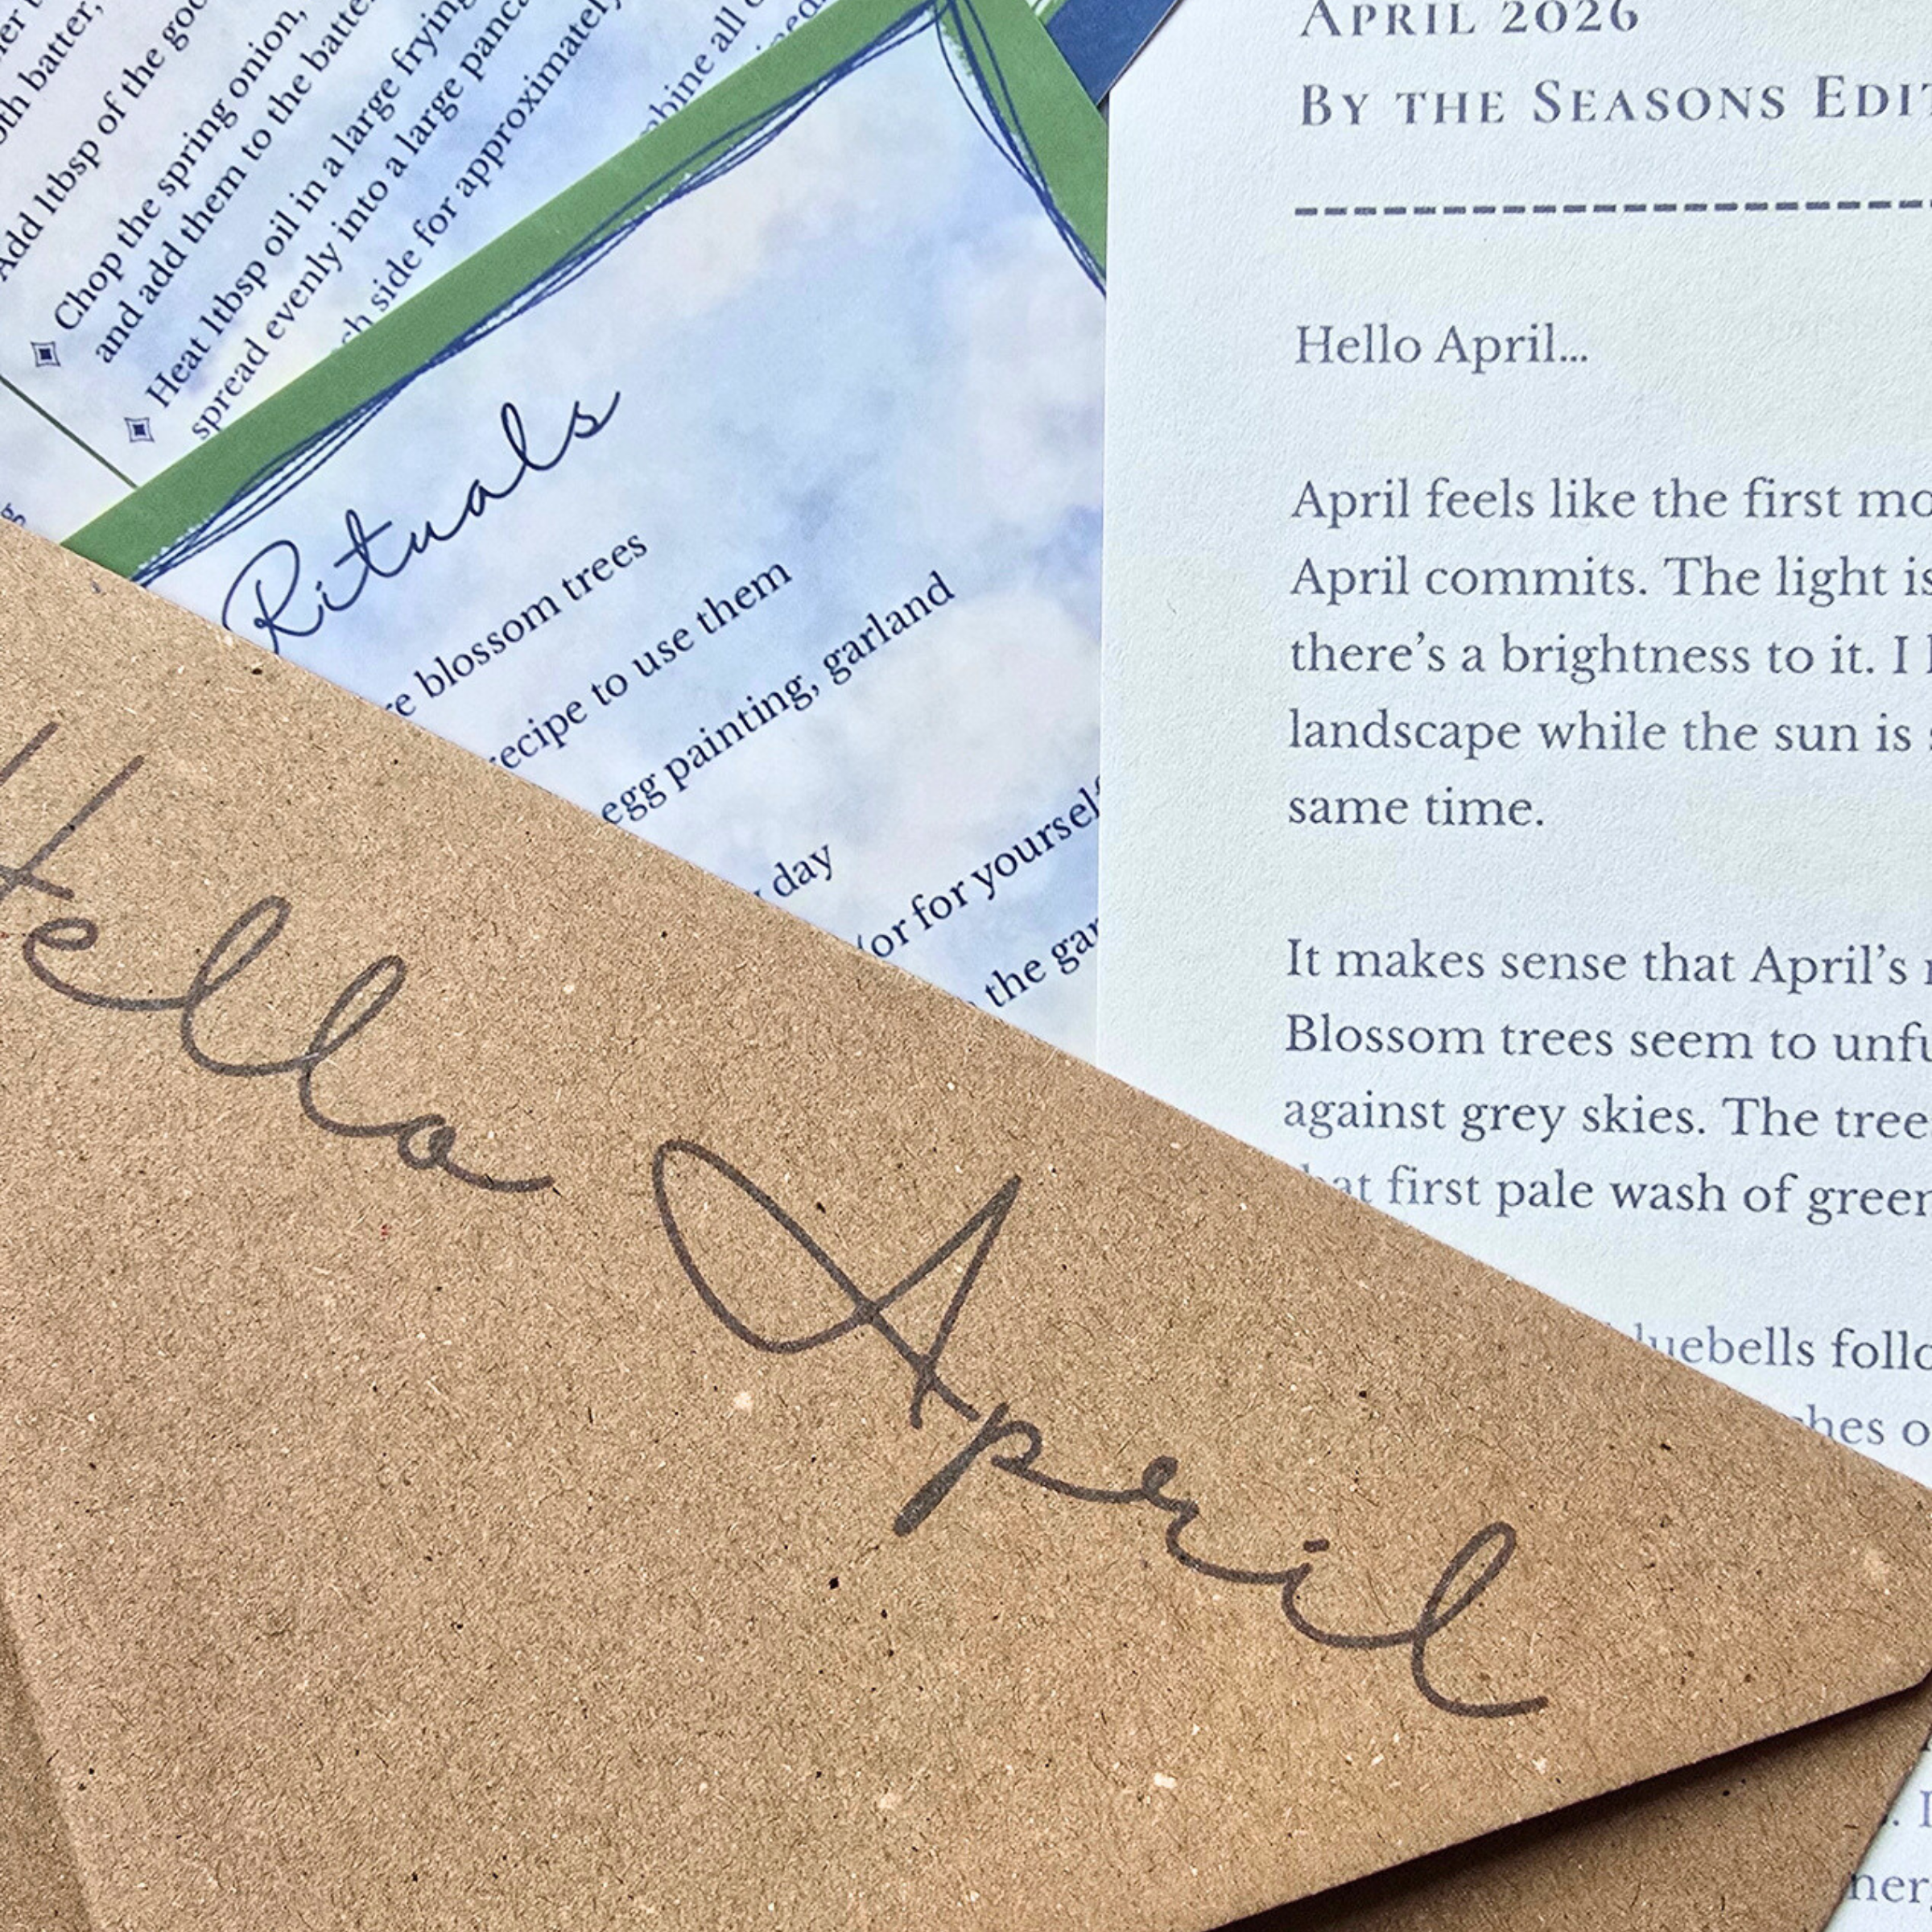 both batter,
Add 1tbsp of the
Chop the spring onion,
and add them to the
Heat 1tbsp oil in a large frying
spread evenly into a large
side for approximately
all
Rituals
blossom trees
recipe to use them
egg painting, garland
day
(or for yourself
the
Hello April
APRIL 2026
BY THE SEASONS
Hello April...
April feels like the first
April commits. The light is
there’s a brightness to it. I
landscape while the sun is
same time.
It makes sense that April’s
Blossom trees seem to
against grey skies. The
first pale wash of green